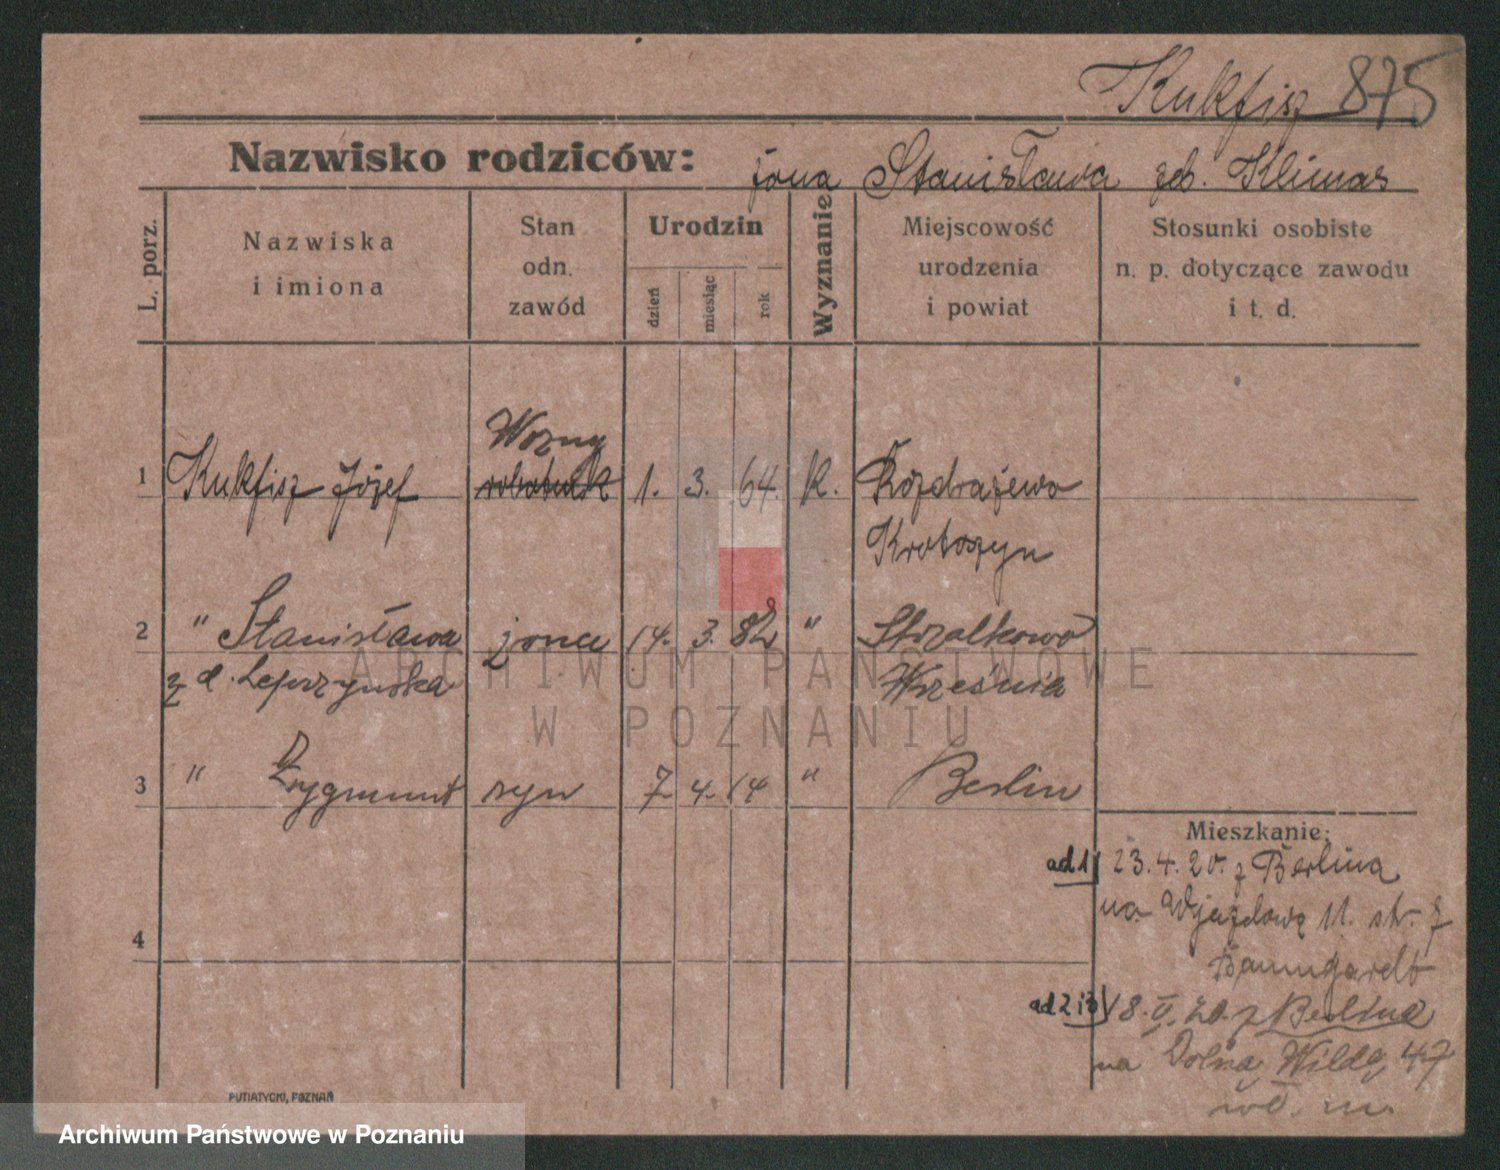 Kukfisz 875
Nazwisko rodziców: żona Stanisława zd. Klimas
L. porz.
Nazwiska
i imiona
Stan
odn.
zawód
Urodzin
dzień
miesiąc
rok
Wyznanie
Miejscowość
urodzenia
i powiat
Stosunki osobiste
n. p. dotyczące zawodu
i t. d.
Woźny
1 Kukfisz Józef robotnik 1. 3. 64. K. Rozdrażewo
Krotoszyn
2 " Stanisława żona 14. 3. 82 " Strzałkowo
z d. Leporzyńska Września
3 " Zygmunt syn 7. 4. 14 " Berlin
4
Mieszkanie:
ad 1) 23. 4. 20. z Berlina
na Wjazdowę 11. str. z
Baumgardt
ad 2 i 3) 18. V. 20. z Berlina
na Dolną Wildę 47
wł. m.
PUTIATYCKI, POZNAŃ
ARCHIWUM PAŃSTWOWE
W POZNANIU
Archiwum Państwowe w Poznaniu